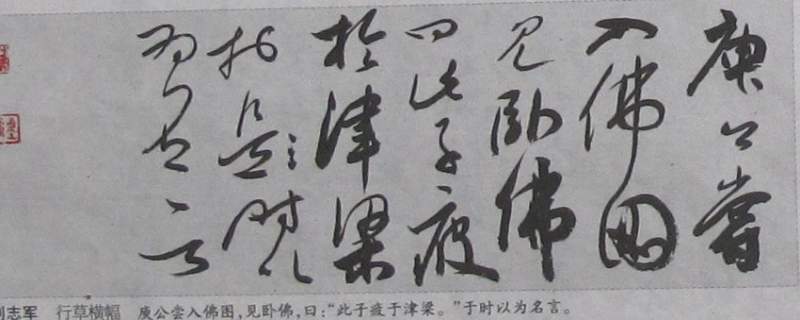 庾公嘗
入佛圖
見臥佛
曰此子疲
於津梁
於是時以
為名言
刘志军 行草横幅 庾公尝入佛图,见卧佛,曰:“此子疲于津梁。”于时以为名言。